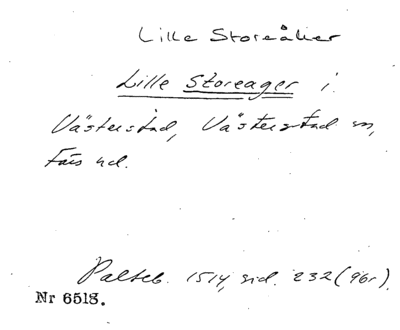 Lille Storeåker
Lille Storeager i
Västerstad, Västerstad sn,
Färs hd.
Palteb. 1514, sid. 232 (96r).
Nr 6518.